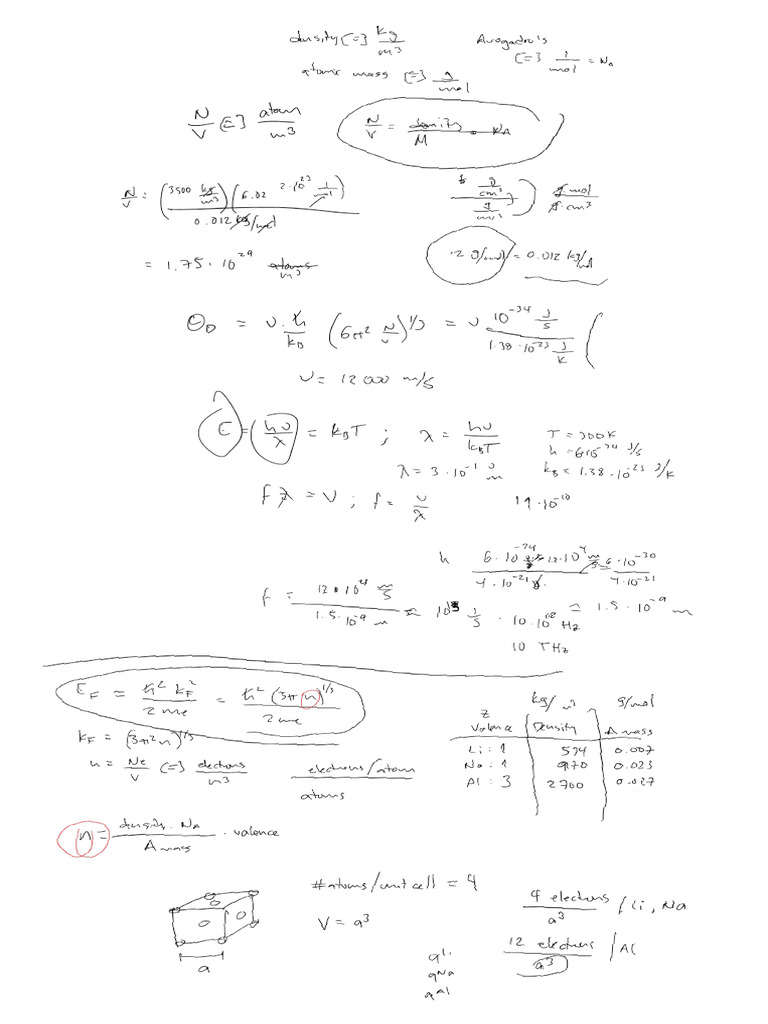 density [=] kg/m³
Avogadro's [=] 1/mol = NA
atomic mass [=] g/mol
N/V [=] atom/m³
N/V = density/M · NA
N/V = (3500 kg/m³)(6.02 2·10²³ 1/mol) / 0.012 kg/mol
g/cm³ / g/mol
g·mol / g·cm³
= 1.75·10²⁹ atoms/m³
2 g/mol = 0.012 kg/mol
ΘD = v·ħ/kB (6π² N/V)^1/3 = v 10⁻³⁴ J/s / 1.38·10⁻²³ J/K (
v = 12000 m/s
E = hv/λ = kBT ; λ = hv/kBT
T = 300K
h = 6·10⁻³⁴ J/s
λ = 3·10⁻¹⁰ m
kB = 1.38·10⁻²³ J/K
fλ = v ; f = v/λ
19·10⁻¹⁰
h
6·10⁻³⁴ · 12·10⁴ m/s / 4·10⁻²¹ J = 6·10⁻³⁰ / 4·10⁻²¹
f = 12·10⁴ m/s / 1.5·10⁻⁹ m ≈ 10¹³ 1/s · 10·10¹² Hz
≈ 1.5·10⁻⁹ m
10 THz
EF = ħ² kF² / 2me = ħ² (3π n)^1/3 / 2me
kF = (3π²n)^1/3
n = Ne/V [=] electrons/m³
electrons/atom / atoms
kg/m³ g/mol
z
Valence Density A mass
Li : 1 534 0.007
Na : 1 970 0.023
Al : 3 2700 0.027
n = density · NA / A mass · valence
#atoms/unit cell = 4
V = a³
a
4 electrons / a³ / Li, Na
12 electrons / a³ / Al
aLi
aNa
aAl